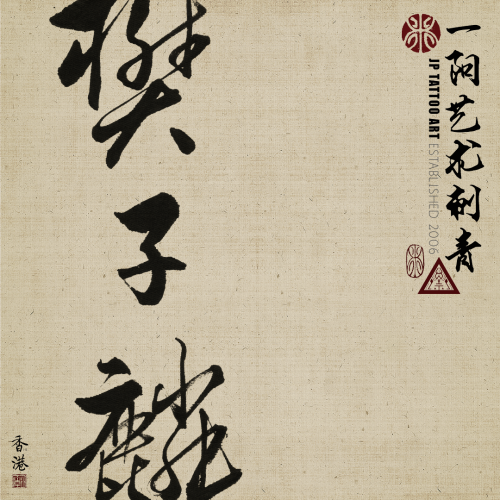 一阳艺术刺青
JP TATTOO ART ESTABLISHED 2006
樊子麟
香港